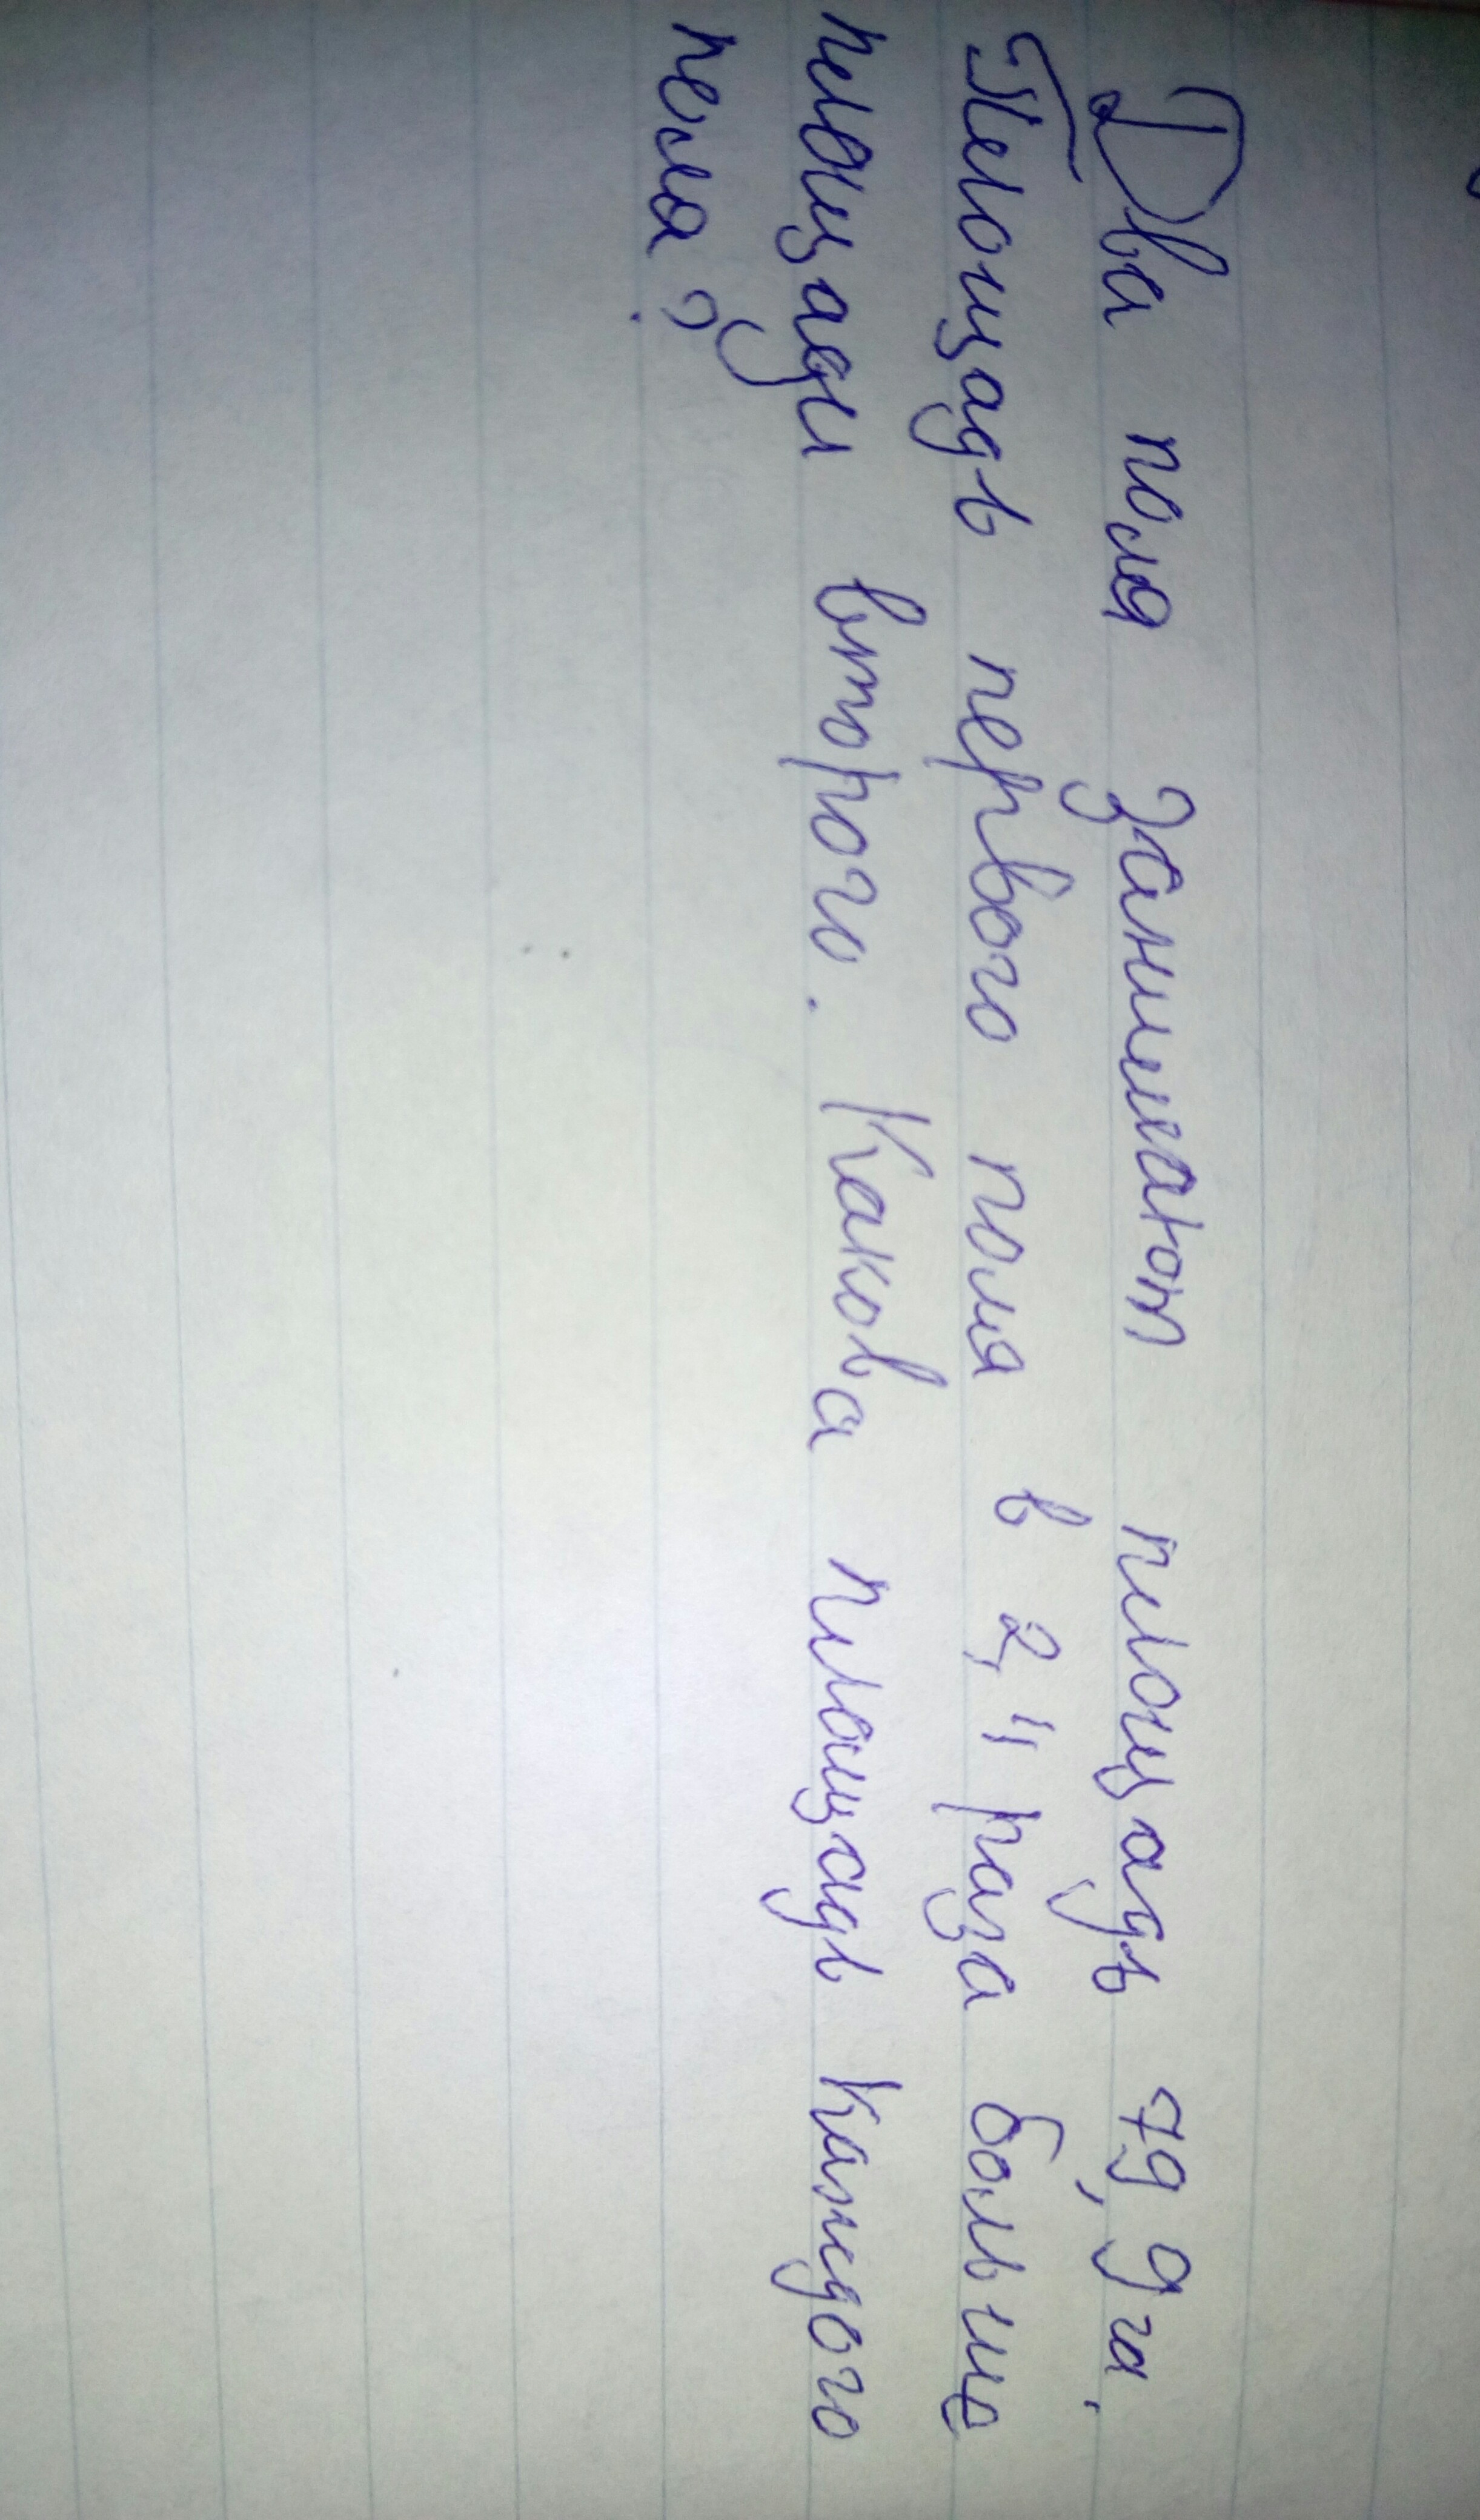 Два поля занимают площадь 79,9 га.
Площадь первого поля в 2,4 раза больше
площади второго. Какова площадь каждого
поля?